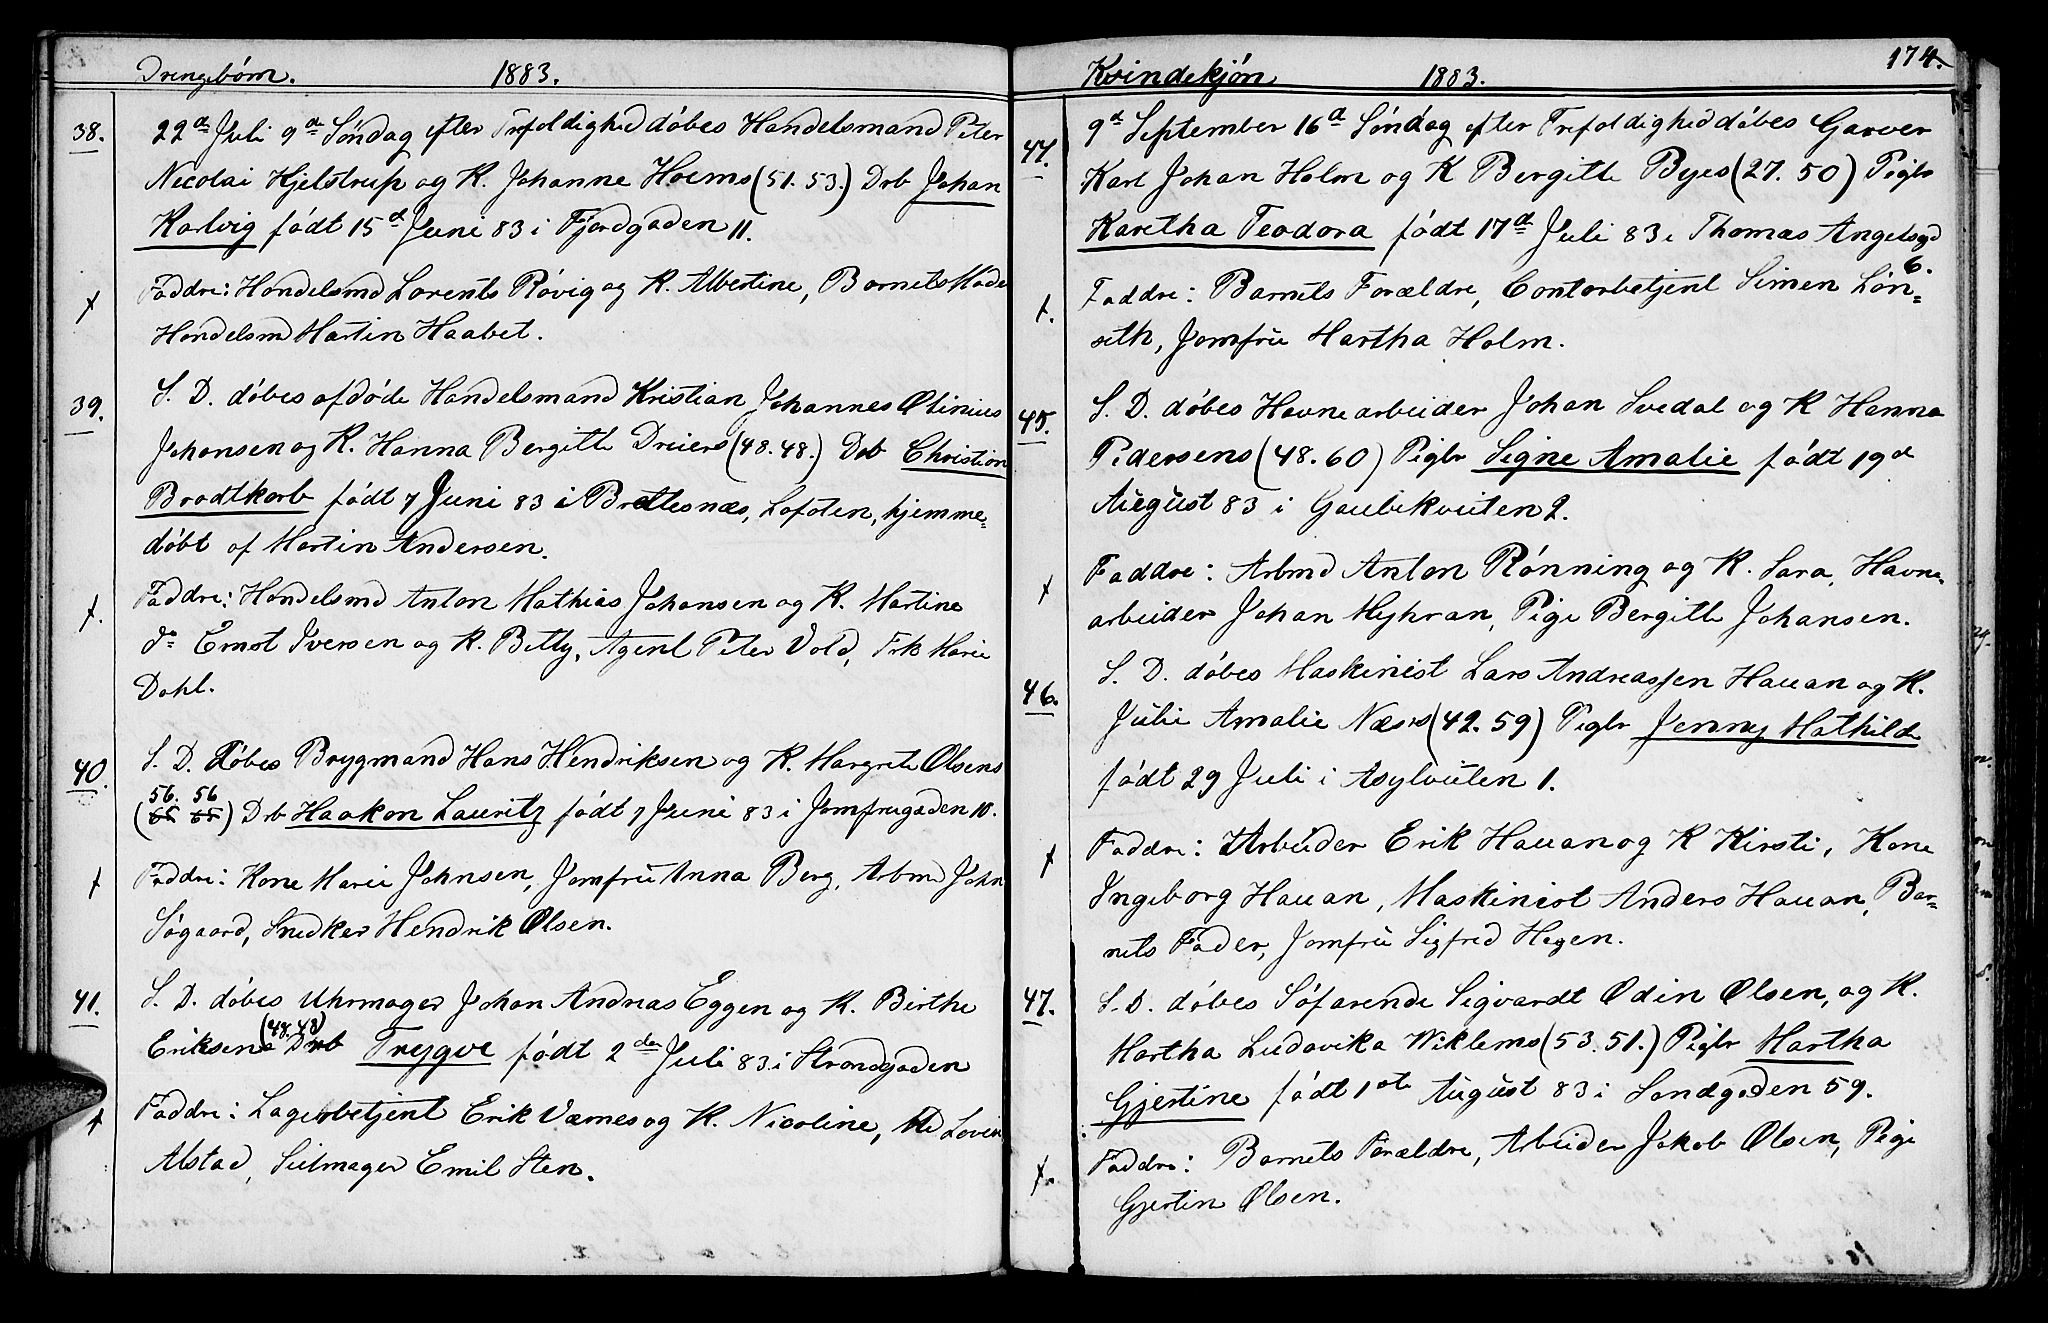 Drengebörn. 1883.
38. 22de Juli 9de Söndag efter Trefoldighed döbes Handelsmand Peter
Necolai Hjelstrup og K. Johanne Hoems (51. 53.) Drb Johan
Karlvig födt 15de Juni 83 i Fjordgaden 11.
Faddre: Handelsmd Lorents Rövig og K. Albertine, Barnets Mode
Handelsmd Martin Haabet.
39. S. D. döbes afdöde Handelsmand Kristian Johannes Olinius
Johansen og K. Hanna Bergitte Dreiers (48. 48.) Drb Christian
Brodtkorb födt 7 Juni 83 i Brettesnæs, Lofoten, hjemme=
döbt af Martin Andersen.
Faddre: Handelsmd Anton Mathias Johansen og K. Martine
do Ernst Iversen og K. Betty, Agent Peter Vold, Frk Marie
Dahl.
40. S. D. döbes Brygmand Hans Hendriksen og K. Margrete Olsens
56. 56
(65 65) Drb Haakon Lauritz födt 7 Juni 83 i Jomfrugaden 10.
Faddre: Kone Marie Johnsen, Jomfru Anna Berg, Arbmd John
Sögaard, Snedker Hendrik Olsen.
41. S. D. döbes Uhrmager Johan Andreas Eggen og K. Birthe
Eriksens (48. 48) Drb Trygve födt 2den Juli 83 i Strandgaden
Faddre: Lagerbetjent Erik Værnes og K. Nicoline, Md Lovise
Alstad, Seilmager Emil Sten.
Kvindekjön 1883. 174.
44. 9de September 16de Söndag efter Trefoldighed döbes Garver
Karl Johan Holm og K Bergitte Byes (27. 50) Pigbr
Karetha Teodora födt 17de Juli 83 i Thomas Angelsgd
6.
Faddre: Barnets Forældre, Contorbetjent Simen Lön=
seth, Jomfru Martha Holm.
45. S. D. döbes Havnearbeider Johan Svedal og K Hanna
Pedersens (48. 60) Pigbr Signe Amalie födt 19de
August 83 i Gaubekveiten 2.
Faddre: Arbmd Anton Rönning og K. Sara, Havne=
arbeider Johan Myhran, Pige Bergitte Johansen.
46. S. D. döbes Maskinist Lars Andreassen Hauan og K.
Julie Amalie Næss (42. 59) Pigbr Jenny Mathilde
födt 29 Juli i Asylveiten 1.
Faddre: Arbeider Erik Hauan og K Kirsti, Kone
Ingeborg Hauan, Maskinist Anders Hauan, Bar=
nets Fader, Jomfru Sigfred Hegen.
47. S. D. döbes Söfarende Sigvardt Odin Olsen, og K.
Martha Ludovika Wiklems (53. 51.) Pigbr Martha
Gjertine födt 1ste August 83 i Sandgaden 59.
Faddre: Barnets Forældre, Arbeider Jakob Olsen, Pige
Gjertin Olsen.